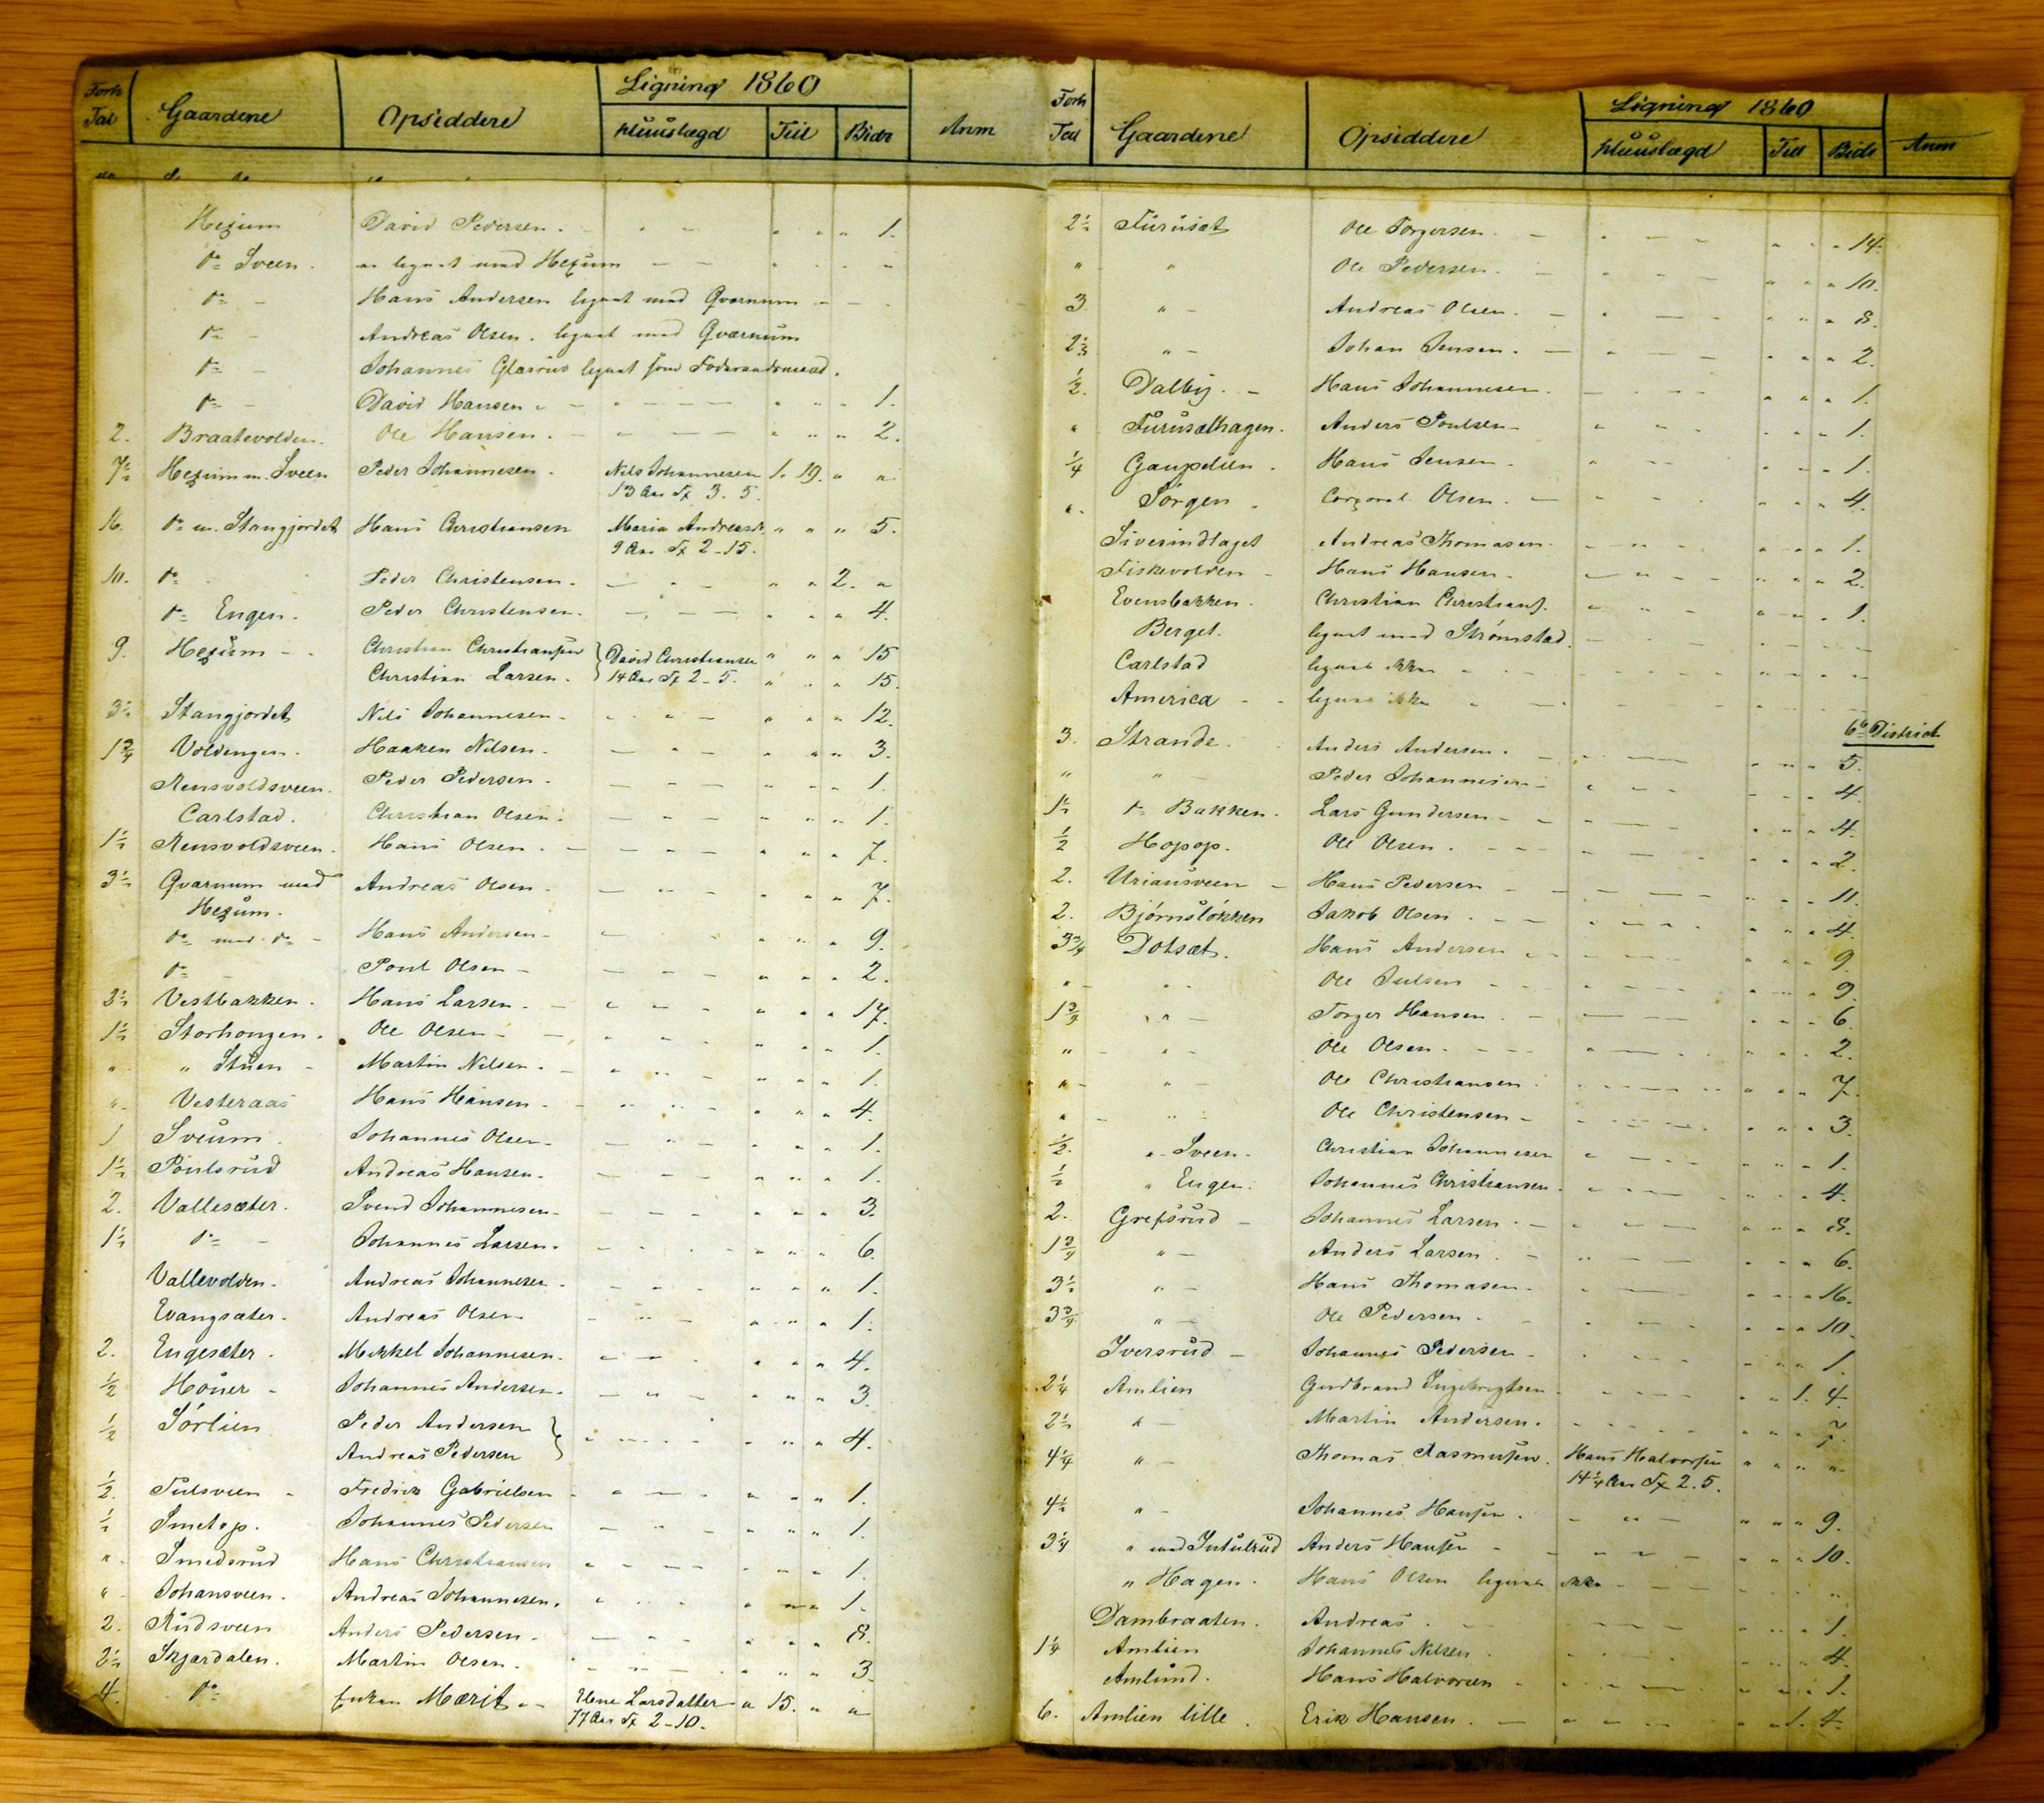 Forh Tal Gaardene Opsiddere Ligning 1860 Anm
Huuslægd Till Bidr
Hexum David Pedersen. 1.
do Sveen. er lignet med Hexum
do Hans Andersen lignet med Qvarnum
do Andreas Olsen. lignet med Qvarnum
do Johannes Glasrud lignet som Foderaadsmand.
do David Hansen 1.
2. Braatevolden. Ole Hansen. 2.
7½ Hexum m. Sveen Peder Johannesen. Nils Johannesen 1. 19. " "
13 Aar 3. 5.
16. do m. Stangjordet Hans Christiansen Maria Andreasdr " " " 5.
9 Aar 2-15.
10. do Peder Christensen. " " 2. "
do Engen. Peder Christensen. 4.
9. Hexum Christian Christiansen David Christiansen " " " 15
Christian Larsen. 14 Aar 2-5. " " " 15.
3½ Stangjordet Nils Johannesen 12.
1¾ Voldengen. Haaken Nilsen. 3.
Rensvoldsveen. Peder Pedersen. 1.
Carlstad. Christian Olsen. 1.
1½ Rensvoldsveen. Hans Olsen. 7.
3½ Qvarnum med Andreas Olsen. 7.
Hexum.
do med do Hans Andersen 9.
do Poul Olsen 2.
3½ Vestbakken. Hans Larsen. 17.
1½ Storhougen. Ole Olsen 1.
" " Stuen Martin Nilsen. 1.
" Vesteraas Hans Hansen. 4.
1 Sveum Johannes Olsen. 1.
1½ Poulsrud Andreas Hansen. 1.
2. Vallesæter. Svend Johannesen 3.
1½ do Johannes Larsen. 6.
Vallevolden. Andreas Johannesen. 1.
Evangsæter. Andreas Olsen 1.
2. Engesæter. Mikkel Johannesen. 4.
½ Honer Johannes Andersen. 3.
½ Sörlien Peder Andersen 4.
Andreas Pedersen
½. Julsveen Fredrik Gabrielsen 1.
½ Smetop. Johannes Pedersen 1.
" Smedsrud Hans Christiansen 1.
" Johansveen. Andreas Johannesen. 1.
2. Rudsveen Anders Pedersen. 8.
2½ Skjærdalen. Martin Olsen. 3.
4. do Enken Marit Elene Larsdatter " 15. " "
77 Aar 2-10.
Forh Tal Gaardene Opsiddere Ligning 1860 Anm
Huuslægd Till Bidr
2½ Furuset Ole Torgersen. 14.
" " Ole Pedersen. 10.
3. " Andreas Olsen. 8.
" Johan Jensen. 2.
½. Dalby. Hans Johannesen. 1.
" Furusethagen. Anders Poulsen 1.
¼ Gaupelien. Hans Jensen. 1.
" Sörgen Corporal Olsen. 4.
Siverindlaget Andreas Thomasen 1.
Fiskevolden Hans Hansen. 2.
Evensbakken. Christian Christians. 1.
Berget. lignet med Strömstad.
Carlstad lignet ikke
America lignet ikke
6te District
3. Strande. Anders Andersen. 5.
" " Peder Johannesen 4.
1½ do Bakken. Lars Gundersen 4.
½ Hopop. Ole Olsen. 2.
2. Uriansveen Hans Pedersen 11.
2. Björnslökken Jakob Olsen. 4.
3¾ Dotsæt. Hans Andersen 9.
" " Ole Julsen 9.
1¾ " Torger Hansen. 6.
" " Ole Olsen. 2.
" " Ole Christiansen 7.
" " Ole Christensen 3.
½. " Sveen. Christian Johannesen 1.
½ " Engen. Johannes Christiansen. 4.
2. Grefsrud Johannes Larsen. 8.
1¾ " Anders Larsen. 6.
3½ " Hans Thomasen. 16.
3¾ " Ole Pedersen. 10.
Iversrud Johannes Pedersen 1.
2¼ Amlien Gudbrand Ingebrigtsen 1. 4.
2½ " Martin Andersen. 7.
4¼ " Thomas Rasmusen. Hans Halvorsen " " " "
14¼ Aar 2. 5.
4½ " Johannes Hansen. 9.
3¼ " med Intulrud Anders Hansen 10.
" Hagen. Hans Olsen lignet ikke
Dambraaten. Andreas. 1.
1¼ Amlien Johannes Nilsen 4.
Amlund. Hans Halvorsen 1.
6. Amlien lille. Erik Hansen. 1. 4.